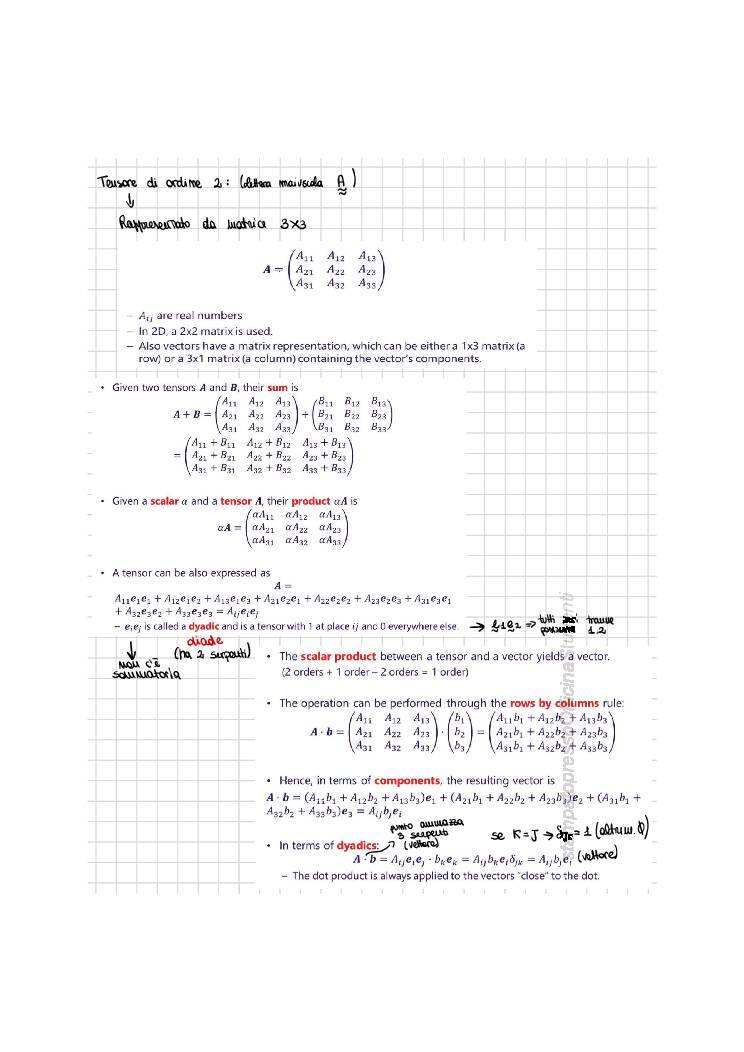 Tensore di ordine 2: (lettera maiuscola A)
↓
Rappresentato da matrice 3x3
A = (A₁₁ A₁₂ A₁₃
A₂₁ A₂₂ A₂₃
A₃₁ A₃₂ A₃₃)
– Aᵢⱼ are real numbers
– In 2D, a 2x2 matrix is used.
– Also vectors have a matrix representation, which can be either a 1x3 matrix (a
row) or a 3x1 matrix (a column) containing the vector's components.
• Given two tensors A and B, their sum is
A + B = (A₁₁ A₁₂ A₁₃ A₂₁ A₂₂ A₂₃ A₃₁ A₃₂ A₃₃) + (B₁₁ B₁₂ B₁₃ B₂₁ B₂₂ B₂₃ B₃₁ B₃₂ B₃₃)
= (A₁₁ + B₁₁ A₁₂ + B₁₂ A₁₃ + B₁₃
A₂₁ + B₂₁ A₂₂ + B₂₂ A₂₃ + B₂₃
A₃₁ + B₃₁ A₃₂ + B₃₂ A₃₃ + B₃₃)
• Given a scalar α and a tensor A, their product αA is
αA = (αA₁₁ αA₁₂ αA₁₃
αA₂₁ αA₂₂ αA₂₃
αA₃₁ αA₃₂ αA₃₃)
• A tensor can be also expressed as
A =
A₁₁e₁e₁ + A₁₂e₁e₂ + A₁₃e₁e₃ + A₂₁e₂e₁ + A₂₂e₂e₂ + A₂₃e₂e₃ + A₃₁e₃e₁
+ A₃₂e₃e₂ + A₃₃e₃e₃ = Aᵢⱼeᵢeⱼ
– eᵢeⱼ is called a dyadic and is a tensor with 1 at place ij and 0 everywhere else. → e1e2 ⇒ tutti tranne
1,2
diade
(ha 2 serpenti)
↓
non c'è
sommatoria
• The scalar product between a tensor and a vector yields a vector.
(2 orders + 1 order – 2 orders = 1 order)
• The operation can be performed through the rows by columns rule:
A · b = (A₁₁ A₁₂ A₁₃ A₂₁ A₂₂ A₂₃ A₃₁ A₃₂ A₃₃) · (b₁ b₂ b₃) = (A₁₁b₁ + A₁₂b₂ + A₁₃b₃
A₂₁b₁ + A₂₂b₂ + A₂₃b₃
A₃₁b₁ + A₃₂b₂ + A₃₃b₃)
• Hence, in terms of components, the resulting vector is
A · b = (A₁₁b₁ + A₁₂b₂ + A₁₃b₃)e₁ + (A₂₁b₁ + A₂₂b₂ + A₂₃b₃)e₂ + (A₃₁b₁ +
A₃₂b₂ + A₃₃b₃)e₃ = Aᵢⱼbⱼeᵢ
punto ammazza
3 serpenti
(vettore)
se K = J → δⱼₖ = 1 (altrim. 0)
• In terms of dyadics:
A · b = Aᵢⱼeᵢeⱼ · bₖeₖ = Aᵢⱼbₖeᵢδⱼₖ = Aᵢⱼbⱼeᵢ (vettore)
– The dot product is always applied to the vectors "close" to the dot.